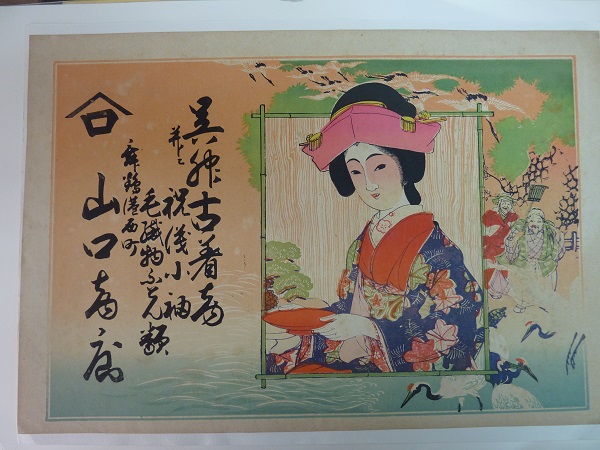 呉服古着商
並ニ
祝儀小袖
毛織物ふとん類
舞鶴港西町
山口商店